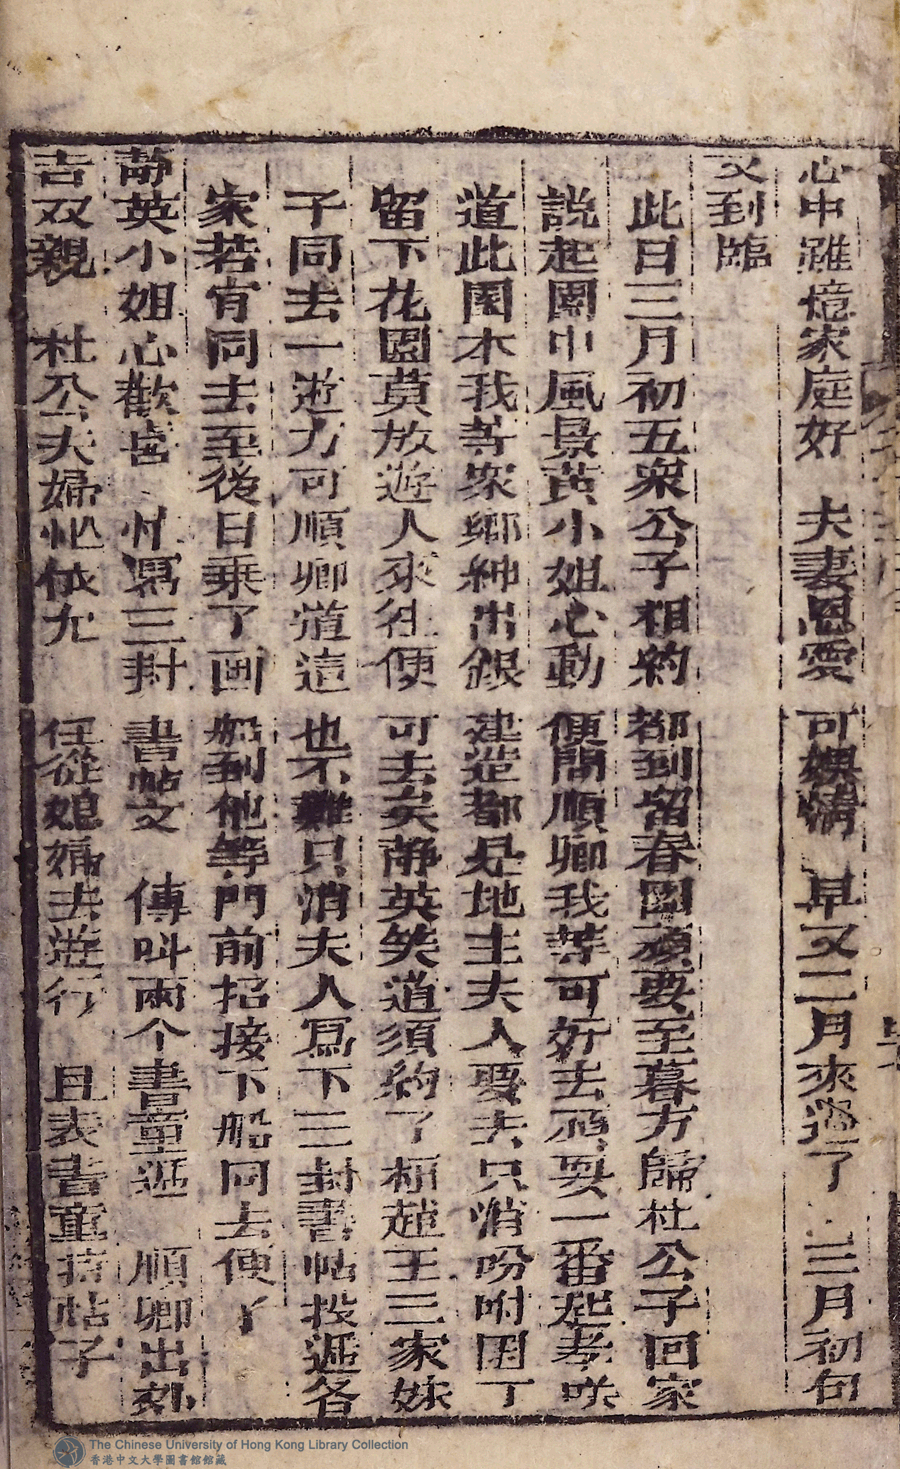 心中雖憶家庭好　夫妻恩愛可娛情　早又二月來過了　三月初旬
又到臨
此日三月初五衆公子相約都到留春園頑要至暮方歸杜公子回家
説起園中風景黃小姐心動便問順卿我等可好去頑耍一番麽孝咲
道此園本我等衆鄉紳出銀建造都是地主夫人要去只消吩咐园丁
留下花園莫放遊人來往便可去矣静英笑道須約了柏趙王三家妹
子同去一遊方可順卿道這也不難只消夫人寫下三封書帖投遞各
家若肯同去至後日乗了画船到他等門前招接下船同去便了
静英小姐心歡喜　忙寫三封書帖文　傳叫兩个書童遞　順卿出刻
告双親　杜公夫婦忙依允　任從媳婦去遊行　且表書童持帖子
The Chinese University of Hong Kong Library Collection
香港中文大學圖書館館藏